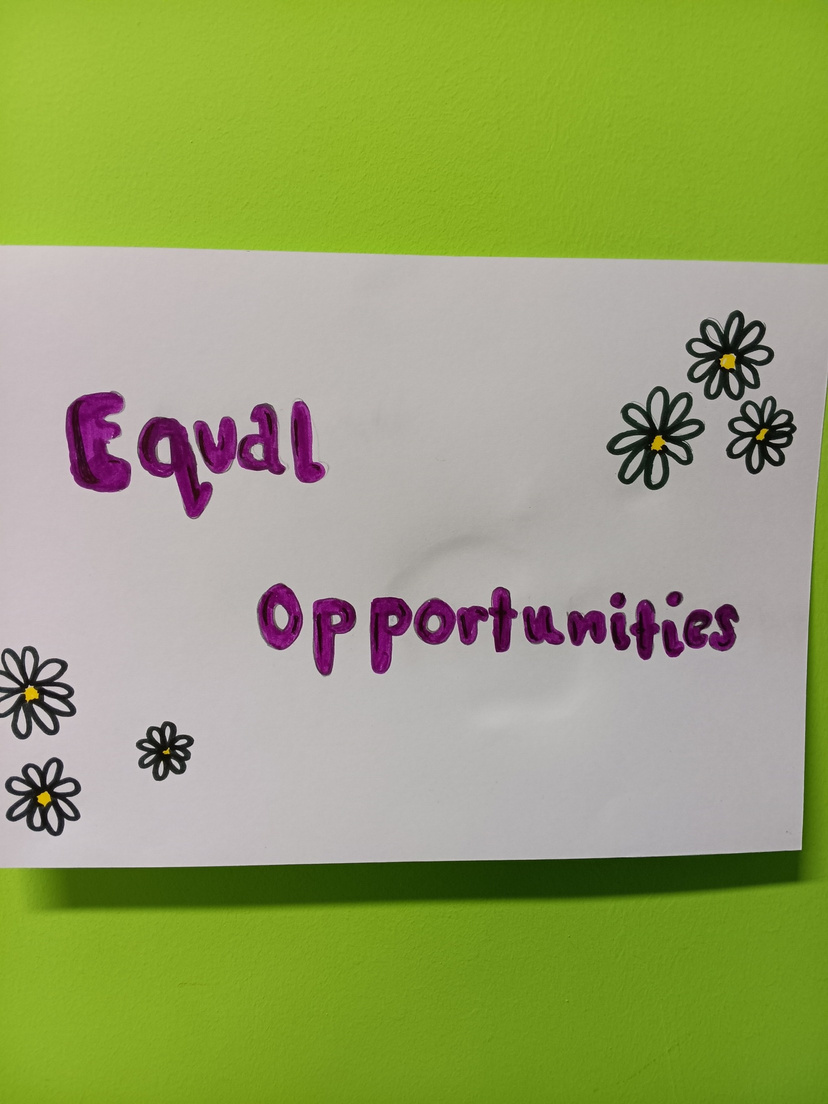 Equal
Opportunities